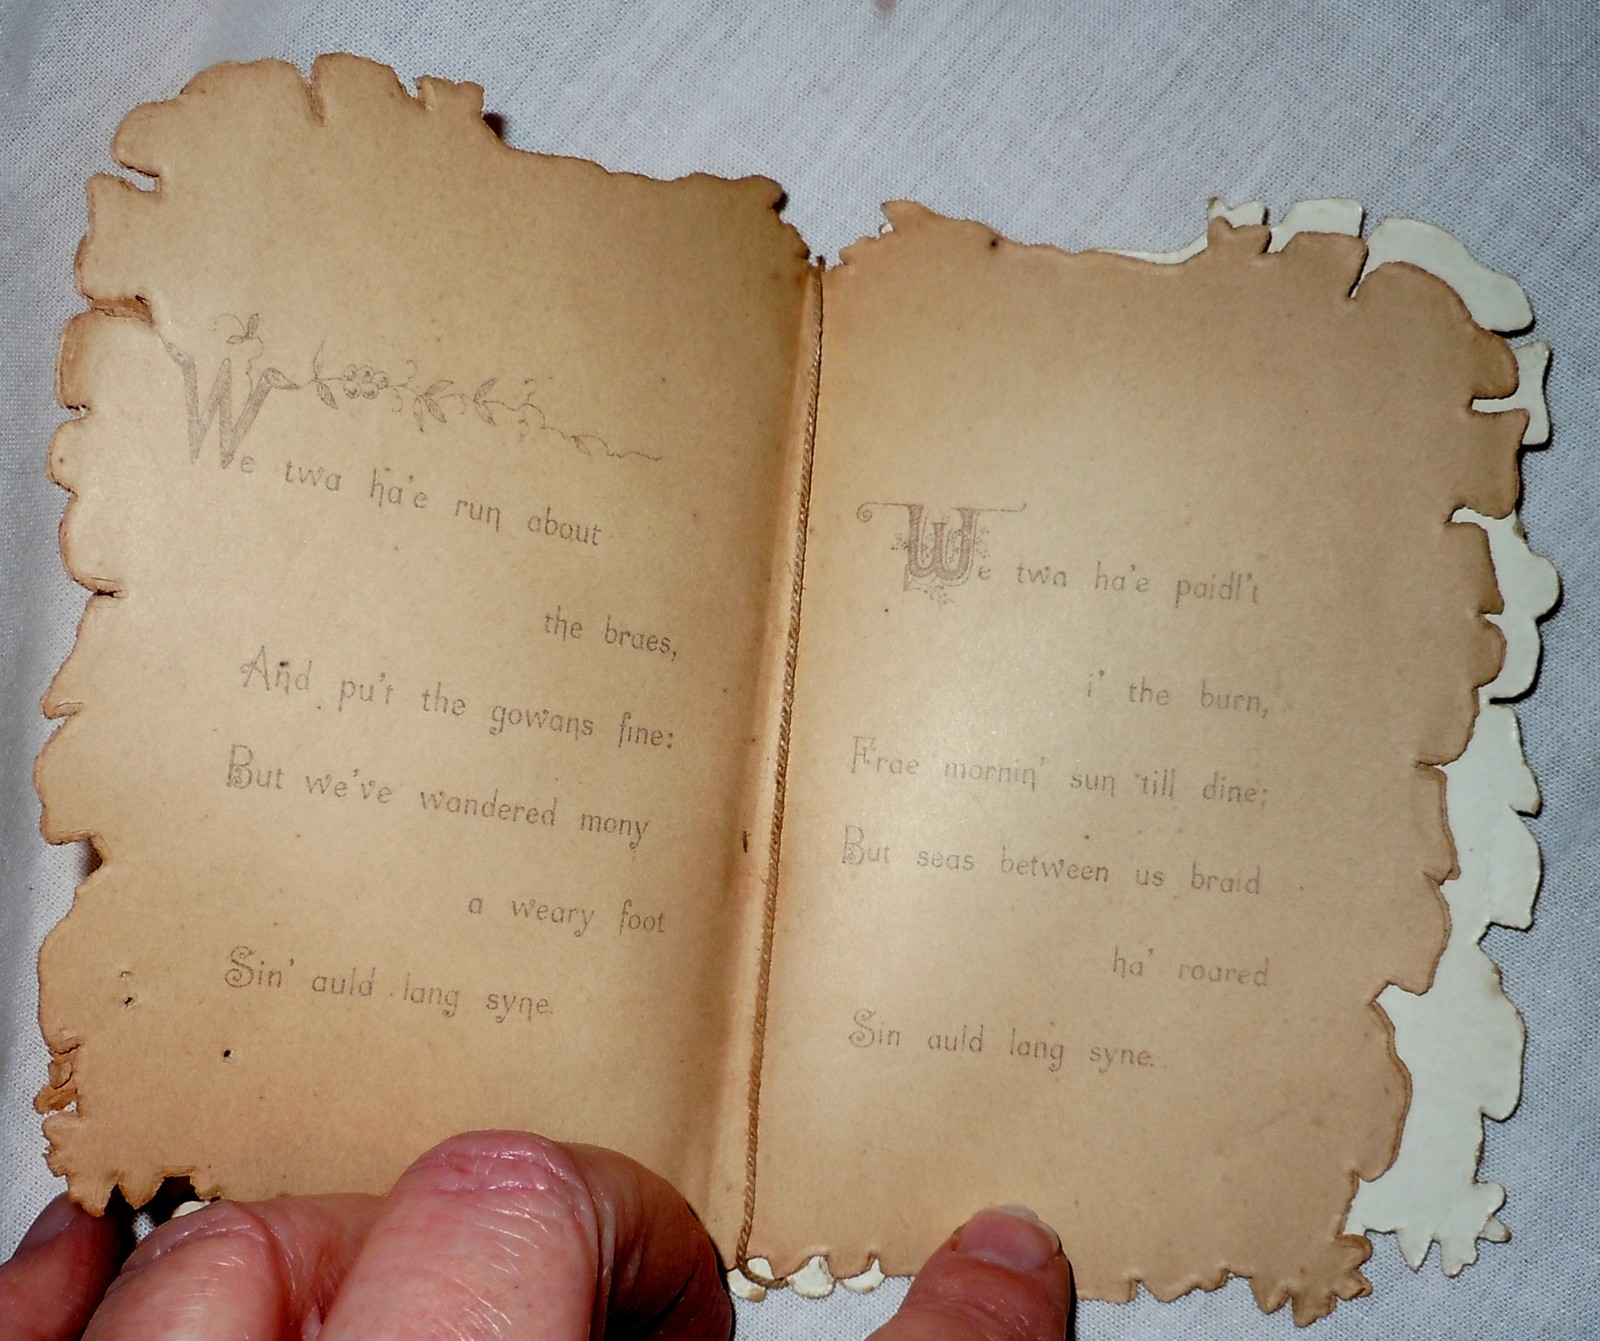 We twa ha'e run about
the braes,
And pu't the gowans fine:
But we've wandered mony
a weary foot
Sin' auld lang syne.
We twa ha'e paidl't
i' the burn,
Frae mornin' sun 'till dine;
But seas between us braid
ha' roared
Sin auld lang syne.